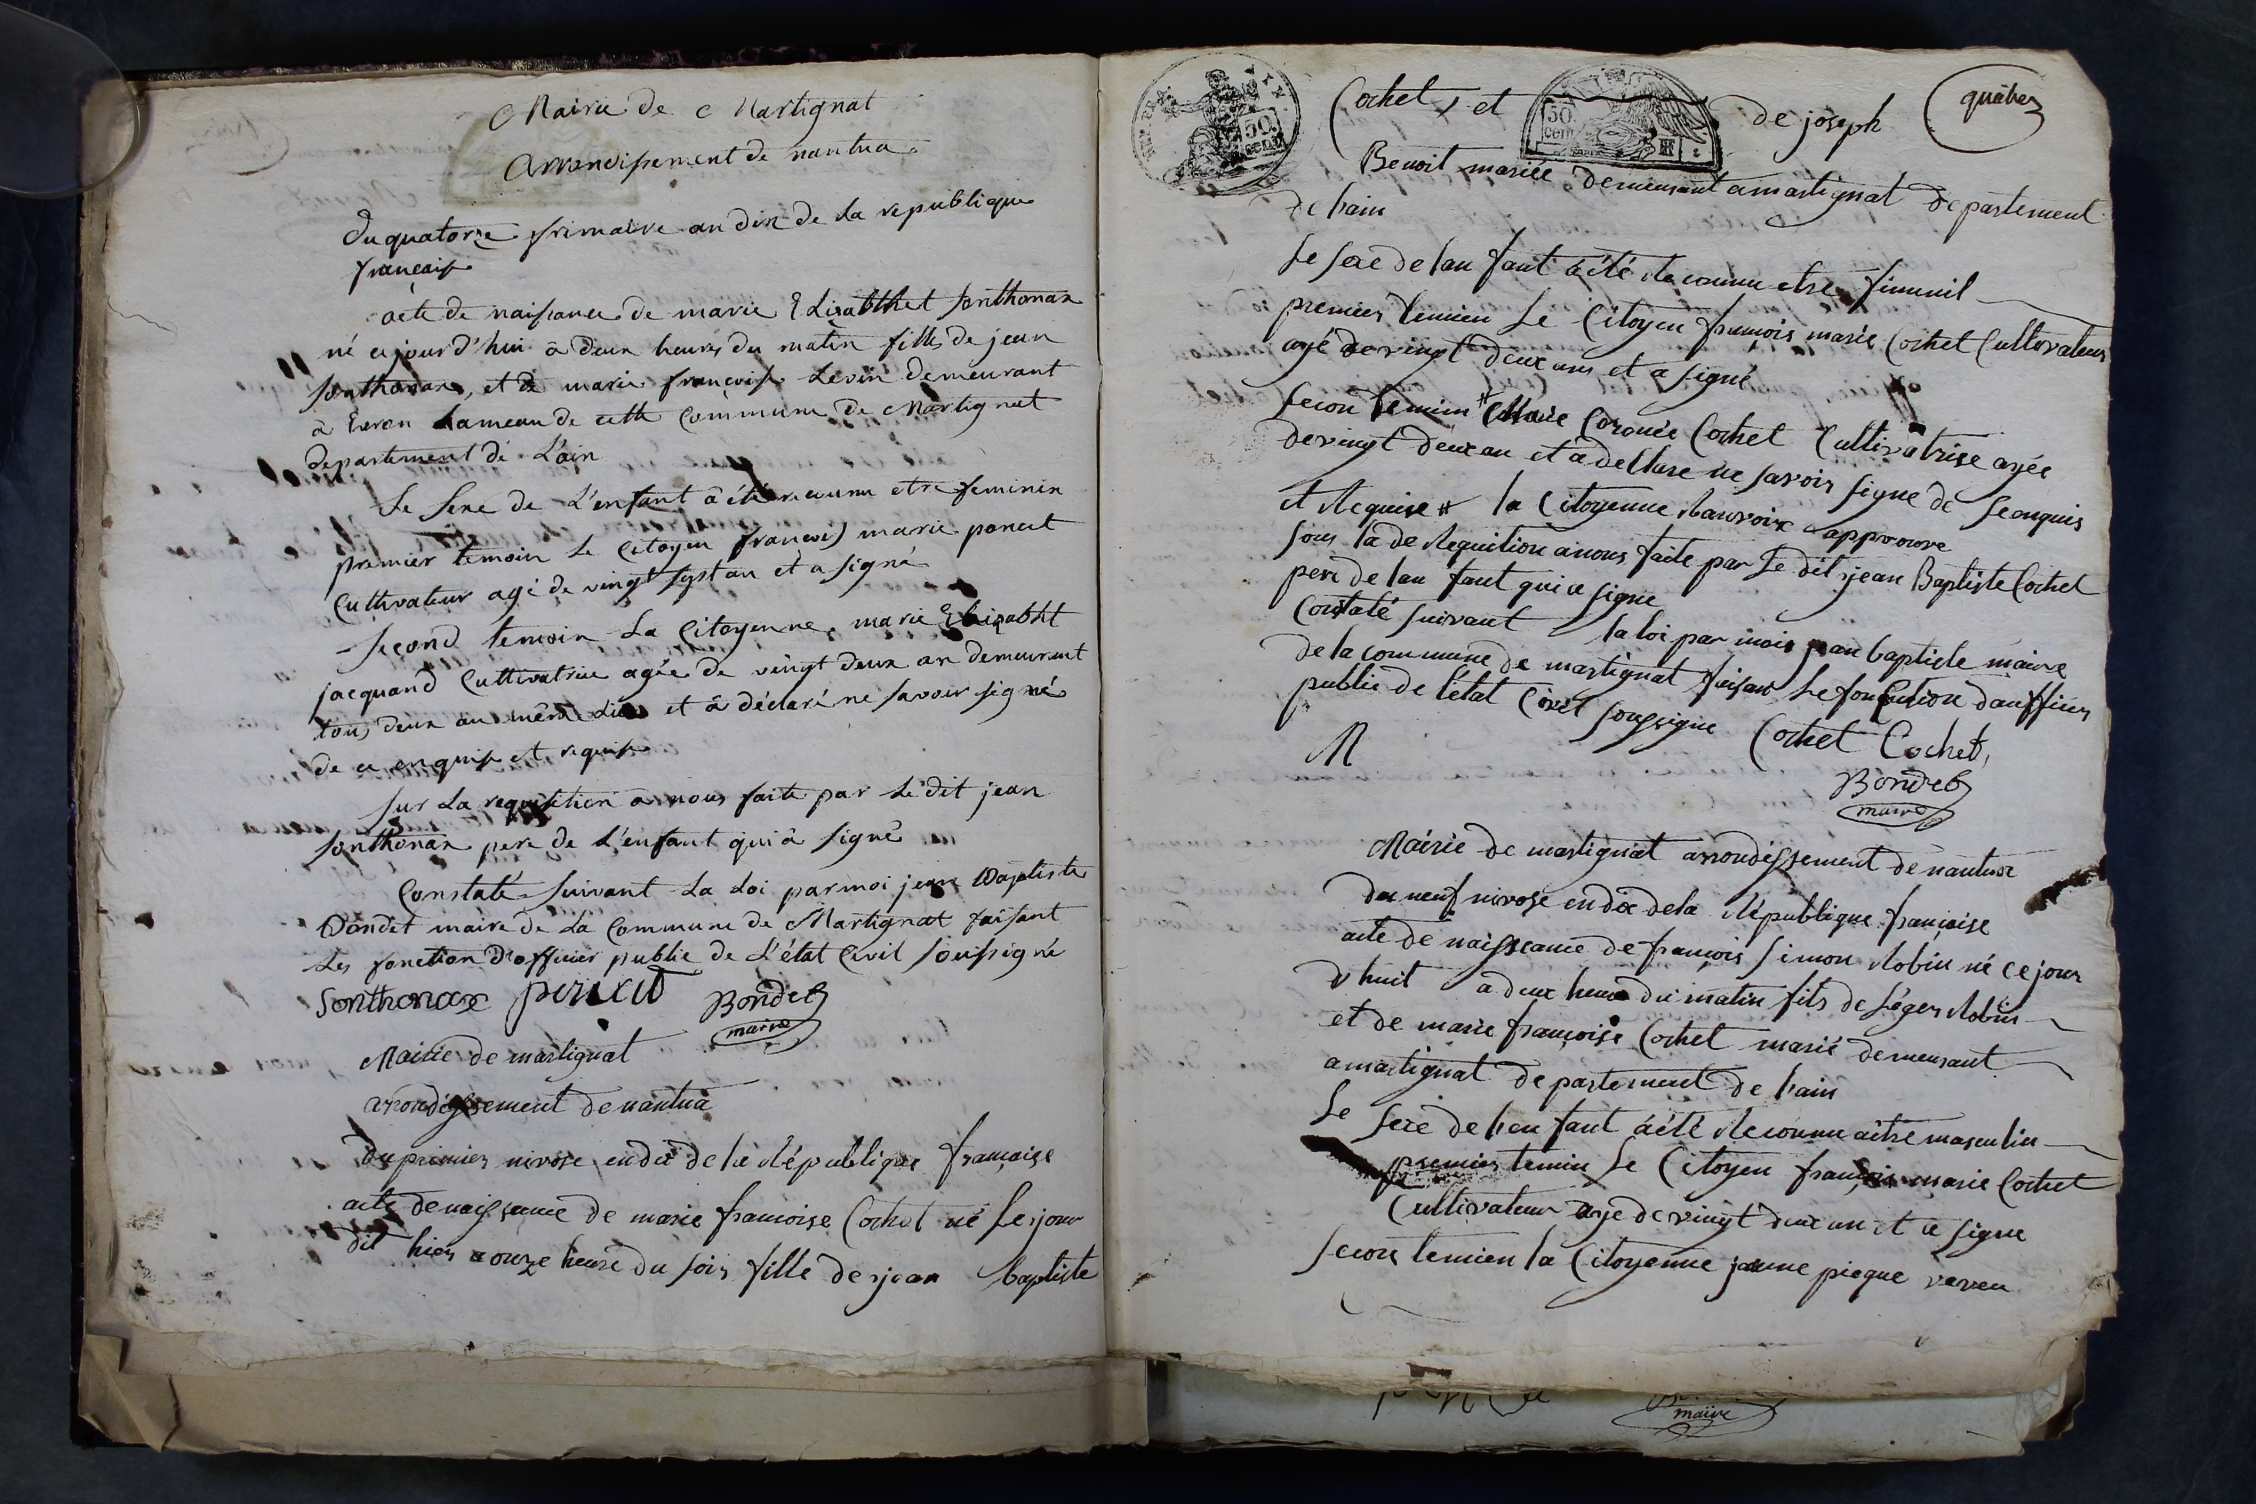 Mairie de Martignat
Arrondissement de nantua
Du quatorze frimaire an dix de la republique
française
acte de naissance de marie Elisabthet Sonthonax
né ajourd'hui à deux heures du matin fille de jean
Sonthonax, et de marie françoise demeurant
à Evron hameau de cette commune de Martignat
departement de L'ain
Le Sexe de L'enfant à été reconnu etre feminin
premier temoin Le Citoyen françois marie poncet
Cultivateur agé de vingt sept an et a signé
Second temoin La Citoyenne marie Elisabht
jacquand Cultivatrice agée de vingt deux an demeurant
tous deux au même lieu et à déclaré ne savoir signé
de ce enquise et requise
Sur La requisition à nous faite par Le dit jean
Sonthonax pere de L'enfant qui à signé
Constaté Suivant La Loi par moi jean Baptiste
Bondet maire de La Commune de Martignat faisant
Les fonction D'officier public de L'état Civil Soussigné
Sonthonax poncet Bondet
maire
Mairie de martignat
arrondissement de nantua
Du premier nivose en dix de la République française
acte de naissance de marie francoise Cochet né Le jour
dit hier a onze heure du soir fille de jean baptiste
Cochet, et de joseph quatre
50 cent
50 cent
RF
Benoit mariée demeurant a martignat departement
de hain
Le sexe de lan fant à été Reconnu etre fiminil
premier temien Le Citoyen françois marie Cochet Cultivateur
agé de vingt deux ans et a signé
Secon temien # Marie Coronée Cochet Cultivatrise agée
de vingt deux an et a dellare ne savoir signe de Senquis
et Requise # la Citoyenne approuve
sous la de Requition a nous faite par Le dit jean Baptiste Cochet
pere de lan fant qui a signe
Constaté suivant la loi par moi jean baptiste maire
de la commune de martignat faisan Le fonction dau fficier
public de l'état Civil soussigne Cochet Cochet,
M
Bondet
maire
Mairie de martignat arrondissement de nantua
du neuf nivose en dix de la République française
acte de naissance de françois Simon Robin né ce jour
d huit a deux heure du matin fils de Léger Robin
et de marie françoise Cochet marié demeurant
a martignat departement de hain
Le Sexe de len fant à été Reconnu aitre masculin
premier temin Le Citoyen françois marie Cochet
Cultivateur age de vingt deux an et a signe
Secon temien la Citoyenne jeanne pieque veveu
maire